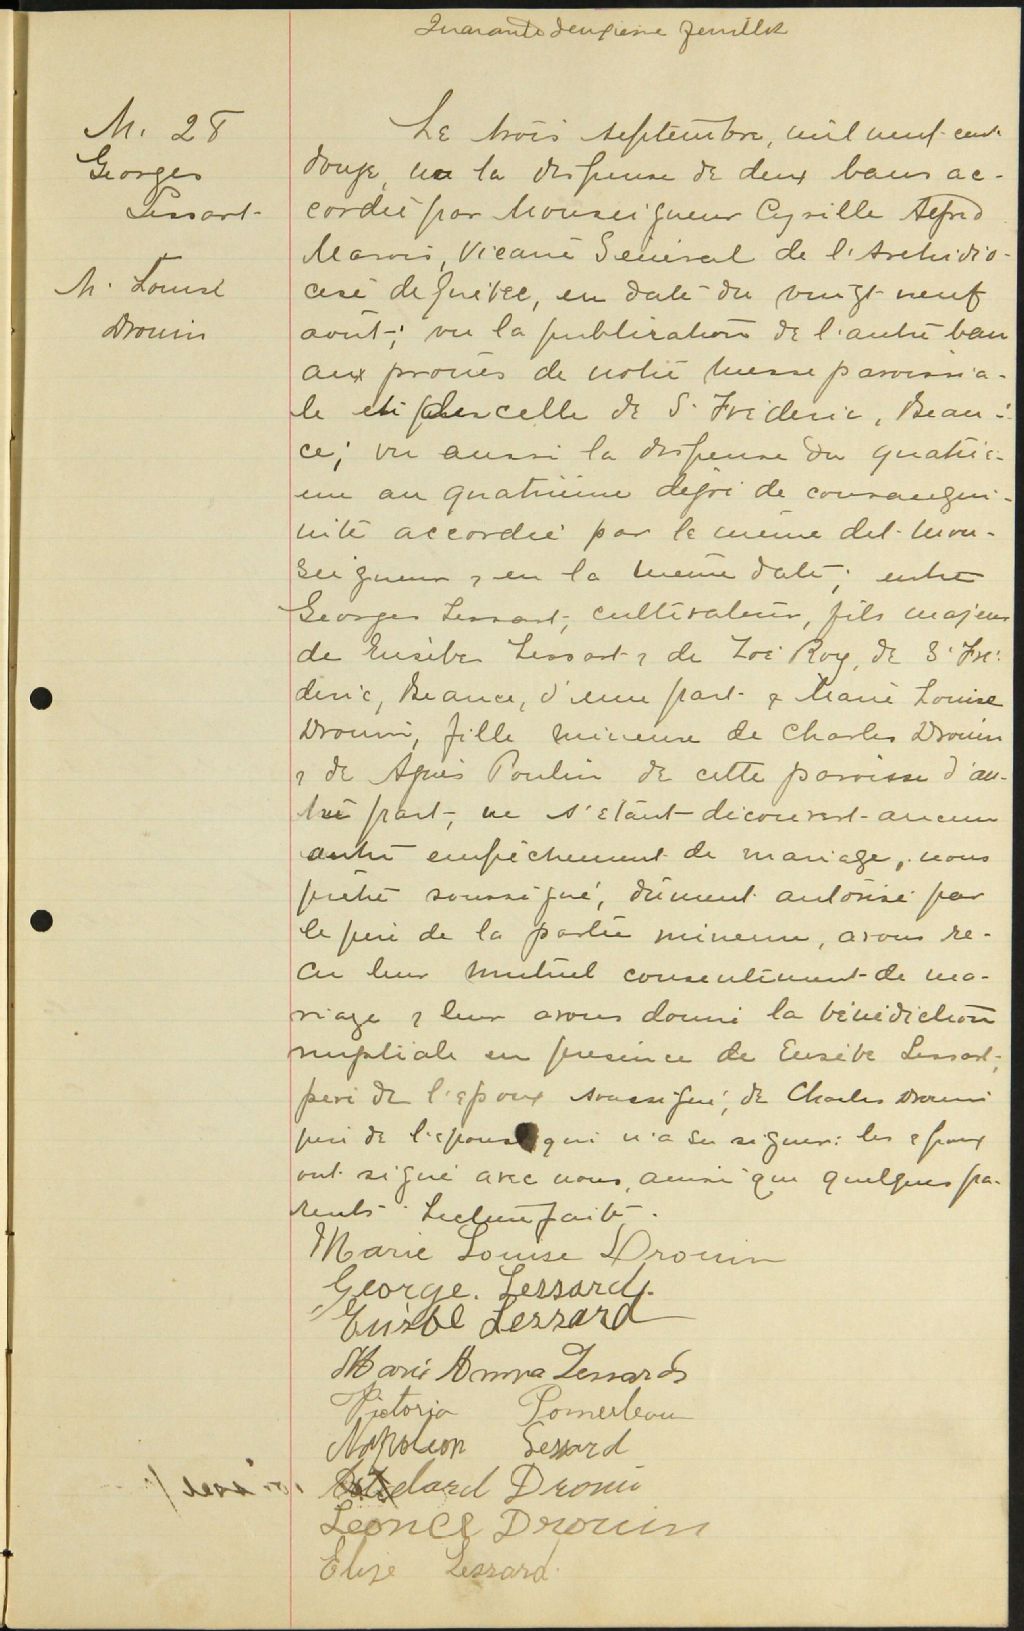 Quarante deuxième feuillet
M. 28
Georges
Lessart
M. Louise
Drouin
Le trois septembre, mil neuf cent
douze, vu la dispense de deux bans ac-
cordée par Monseigneur Cyrille Alfred
Marois, Vicaire Général de l'Archidio-
cèse de Québec, en date du vingt neuf
août; vu la publication de l'autre ban
aux prônes de notre messe paroissia-
le et de celle de S. Fréderic, Beau-
ce; vu aussi la dispense du quatriè-
me au quatrième dégré de consangui-
nité accordée par le même dit Mon-
seigneur, en la même date; entre
Georges Lessart, cultivateur, fils majeur
de Eusèbe Lessart & de Zoé Roy, de S. Fré-
deric, Beauce, d'une part & Marie Louise
Drouin, fille mineure de Charles Drouin
& de Agnès Poulin de cette paroisse d'au-
tre part, ne s'étant découvert aucun
autre empêchement de mariage, nous
prêtre soussigné, dûment autorisé par
le père de la partie mineure, avons re-
çu leur mutuel consentement de ma-
riage & leur avons donné la bénédiction
nuptiale en présence de Eusèbe Lessart,
père de l'époux soussigné, de Charles Drouin
père de l'épouse qui n'a su signer: les époux
ont signé avec nous, ainsi que quelques pa-
rents. Lecture faite.
Marie Louise Drouin
George. Lessard.
Eusèbe Lessard
Marie Anna Lessards
Victoria Pomerleau
Napoleon Lessard
Drouin
Leonce Drouin
Elise Lessard